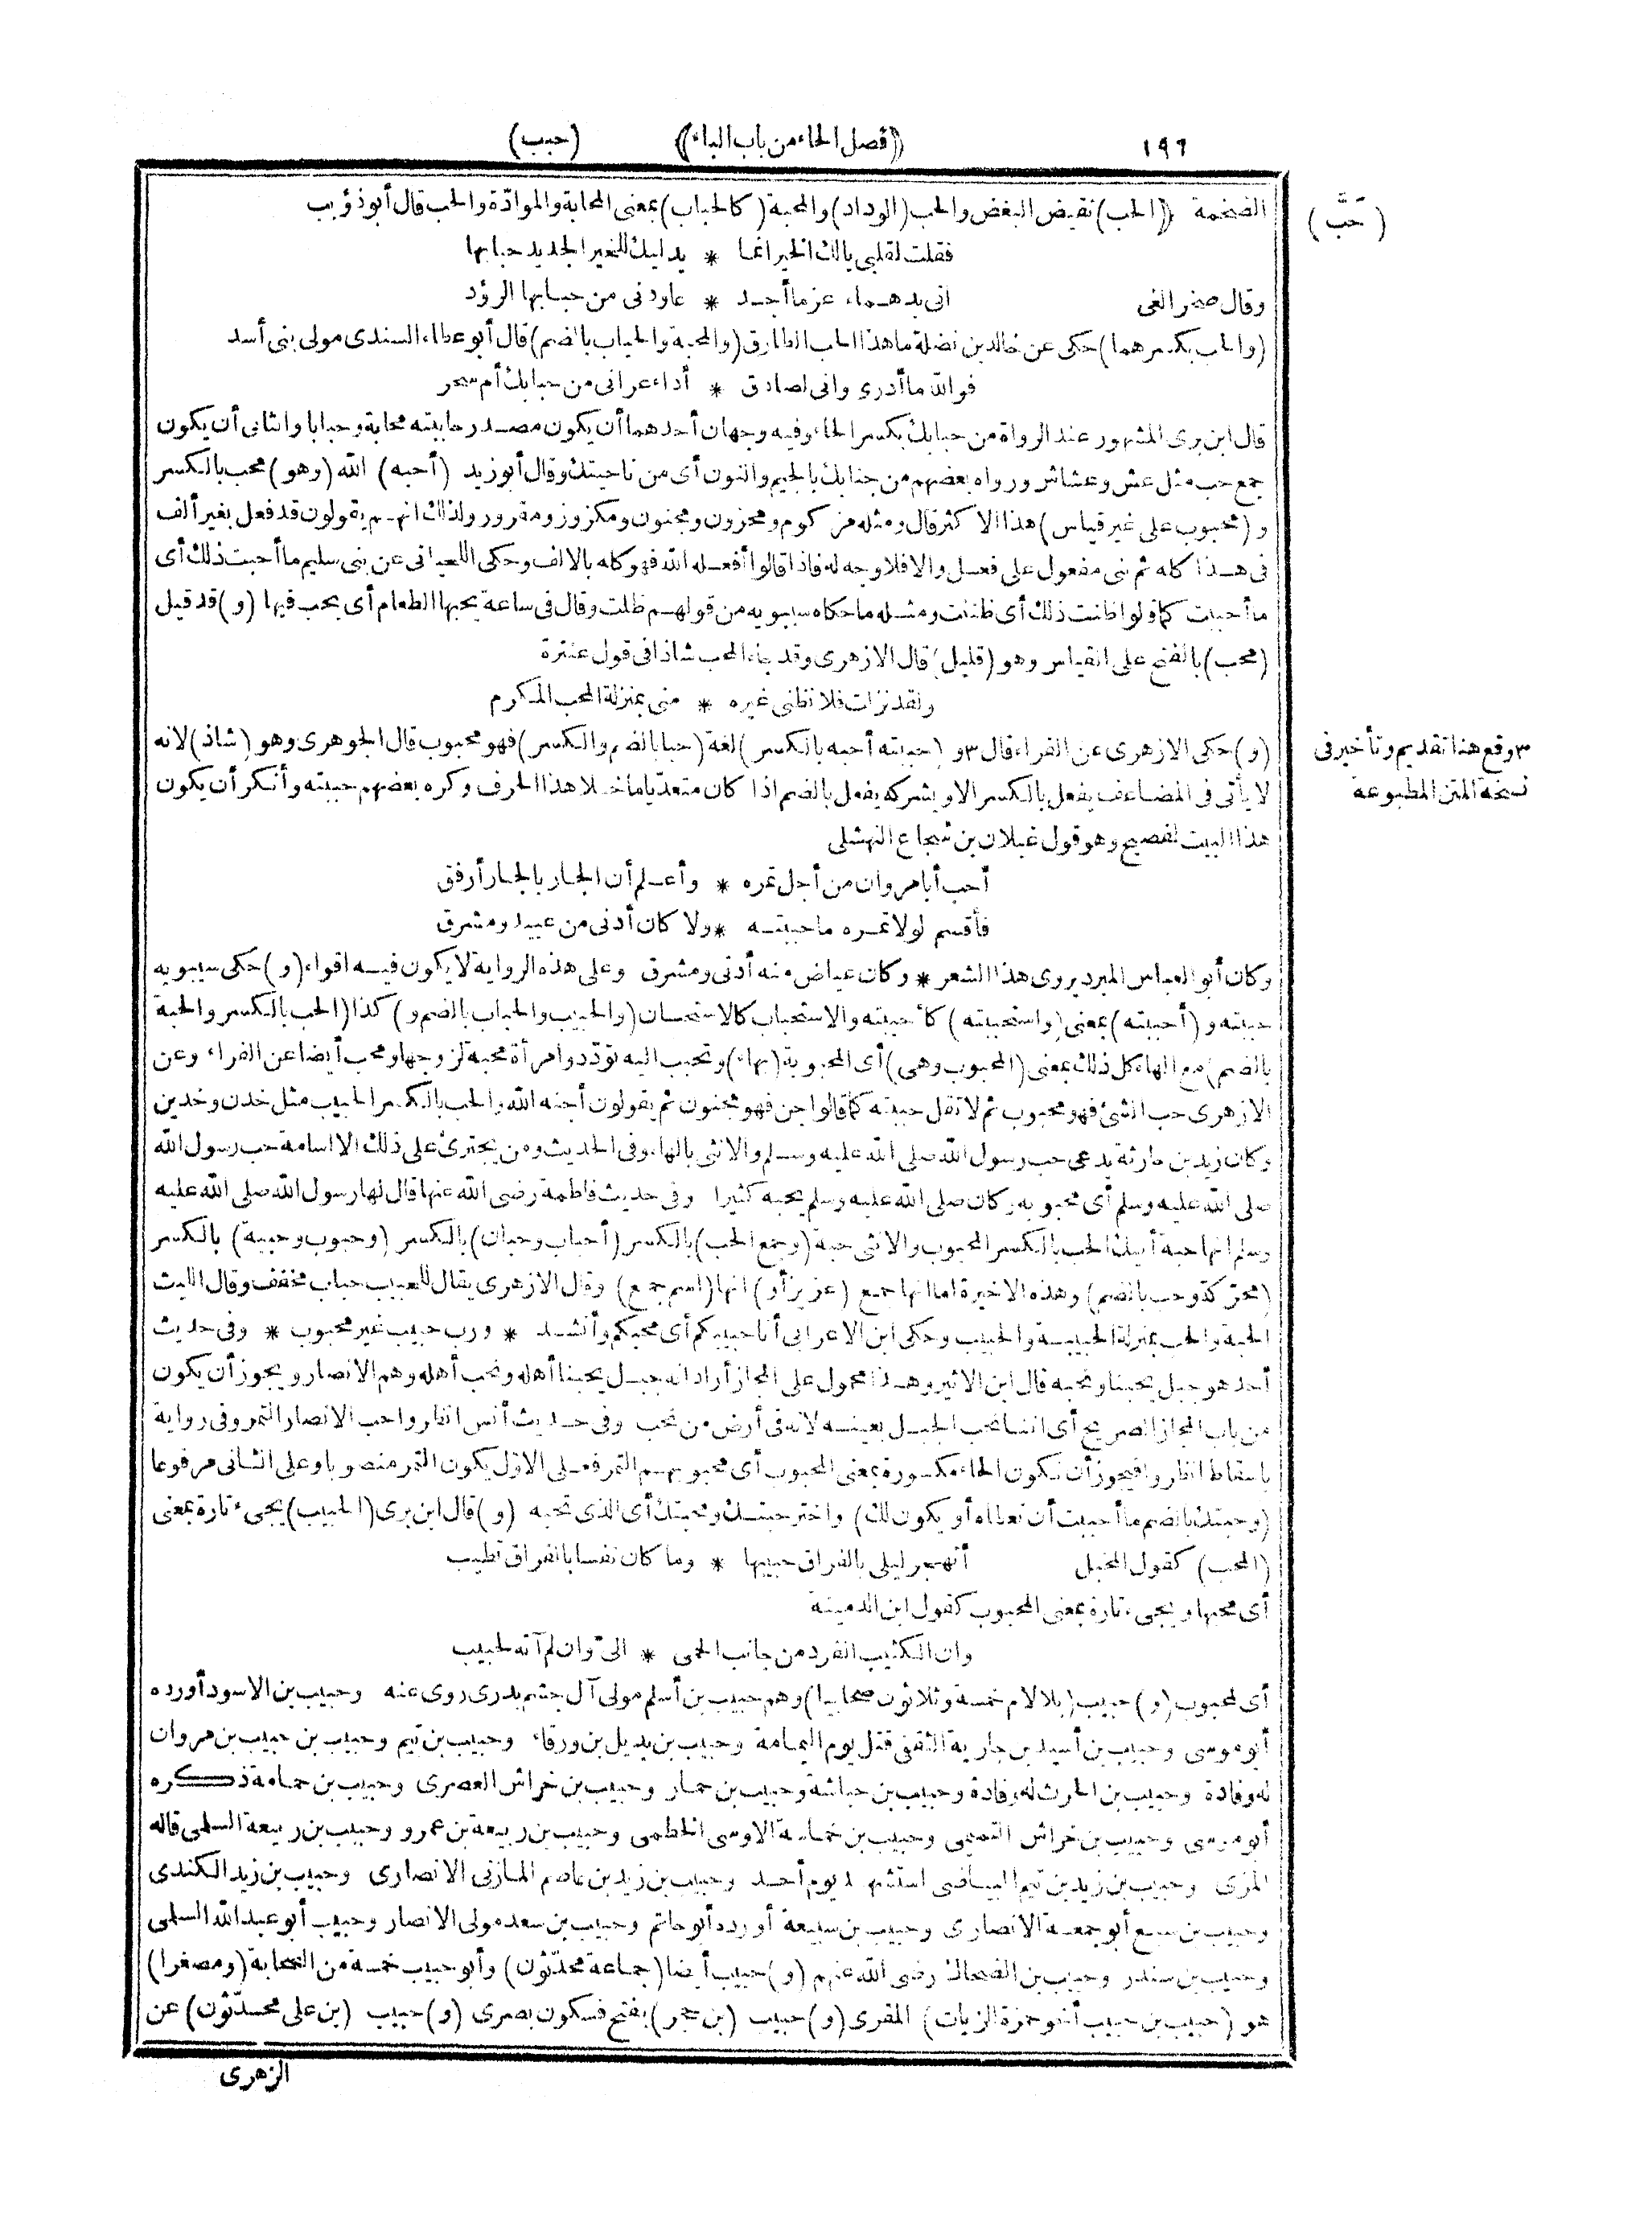 ١٩٦ ((فصل الحاء من باب الباء)) (حبب)
(حَبَّ)
الضخمة ((الحب) نقيض البغض والحب (الوداد) والمحبة (كالحباب) بمعنى المحابة والموادّة والحب قال أبو ذؤيب
فقلت لقلبي يا لك الخير انما * يدليك للخير الجديد حبابها
وقال صخر الغي انى بدهماء عز ما أجد * عاودنى من حبابها الزؤد
(والحب بكسرهما) حكى عن خالد بن نضلة ما هذا الحب الطارق (والمحبة والحباب بالضم) قال أبو عطاء السندى مولى بنى أسد
فوالله ما أدرى وانى لصادق * أداء عرانى من حبابك أم سحر
قال ابن برى المشهور عند الرواة من حبابك بكسر الحاء وفيه وجهان أحدهما أن يكون مصدر حاببته محابة وحبابا والثانى أن يكون
جمع حب مثل عش وعشاش ورواه بعضهم من جنابك بالجيم والنون أى من ناحيتك وقال أبو زيد (أحبه) الله (وهو) محب بالكسر
و (محبوب على غير قياس) هذا الاكثر قال ومثله مزكوم ومحزون ومجنون ومكزوز ومقرور ولذلك انهم يقولون قد فعل بغير ألف
فى هذا كله ثم بنى مفعول على فعل والا فلا وجه له فاذا قالوا أفعله الله فهو كله بالالف وحكى اللحيانى عن بنى سليم ما أحبت ذلك أى
ما أحببت كما قالوا ظنت ذلك أى ظننت ومثله ما حكاه سيبويه من قولهم ظلت وقال فى ساعة يحبها الطعام أى يحب فيها (و) قد قيل
(محب) بالفتح على القياس وهو (قليل) قال الازهرى وقد جاء المحب شاذا فى قول عنترة
ولقد نزلت فلا تظنى غيره * منى بمنزلة المحب المكرم
(و) حكى الازهرى عن الفراء قال ٣ و (حببته أحبه بالكسر) لغة (حبا بالضم والكسر) فهو محبوب قال الجوهرى وهو (شاذ) لانه
٣ وقع هنا تقديم وتأخير فى
نسخة المتن المطبوعة
لا يأتى فى المضاعف يفعل بالكسر الا ويشركه يفعل بالضم اذا كان متعدّيا ما خلا هذا الحرف وكره بعضهم حببته وأنكر أن يكون
هذا البيت لفصيح وهو قول غيلان بن شجاع النهشلى
أحب أبا مروان من أجل تمره * وأعلم أن الجار بالجار أرفق
فأقسم لولا تمره ما حببته * ولا كان أدنى من عبيد ومشرق
وكان أبو العباس المبرد يروى هذا الشعر * وكان عياض منه أدنى ومشرق وعلى هذه الرواية لا يكون فيه اقواء (و) حكى سيبويه
حببته و (أحببته) بمعنى (واستحببته) كأحببته والاستحباب كالاستحسان (والحبيب والحباب بالضم و) كذا (الحب بالكسر والحبة
بالضم) مع الهاء كل ذلك بمعنى (المحبوب وهى) أى المحبوبة (بهاء) وتحبب اليه تودّد وامرأة محبة لزوجها ومحب أيضا عن الفراء وعن
الازهرى حب الشئ فهو محبوب ثم لا تقل حببته كما قالوا جن فهو مجنون ثم يقولون أجنه الله والحب بالكسر الحبيب مثل خدن وخدين
وكان زيد بن حارثة يدعى حب رسول الله صلى الله عليه وسلم والانثى بالهاء وفى الحديث ومن يجترئ على ذلك الا اسامة حب رسول الله
صلى الله عليه وسلم أى محبوبه وكان صلى الله عليه وسلم يحبه كثيرا وفى حديث فاطمة رضى الله عنها قال لها رسول الله صلى الله عليه
وسلم انها حبة أبيك الحب بالكسر المحبوب والانثى حبة (وجمع الحب) بالكسر (أحباب وحبان) بالكسر (وحبوب وحببة) بالكسر
(محرّكة وحب بالضم) وهذه الاخيرة اما انها جمع (عزيز أو) انها (اسم جمع) وقال الازهرى يقال للحبيب حباب مخفف وقال الليث
الحبة والحب بمنزلة الحبيبة والحبيب وحكى ابن الاعرابى أنا حبيبكم أى محبكم وأنشد * ورب حبيب غير محبوب * وفى حديث
أحد هو جبل يحبنا ونحبه قال ابن الاثير وهذا محمول على المجاز أراد انه جبل يحبنا أهله ونحب أهله وهم الانصار ويجوز أن يكون
من باب المجاز الصريح أى اننا نحب الجبل بعينه لانه فى أرض من نحب وفى حديث أنس انظروا حب الانصار التمر وفى رواية
باسقاط انظروا فيجوز أن تكون الحاء مكسورة بمعنى المحبوب أى محبوبهم التمر فعلى الاوّل يكون التمر منصوبا وعلى الثانى مرفوعا
(وحبتك بالضم ما أحببت أن تعطاه أو يكون لك) واختر حبتك ومحبتك أى الذى تحبه (و) قال ابن برى (الحبيب) يجىء تارة بمعنى
(المحب) كقول المخبل أتهجر ليلى بالفراق حبيبها * وما كان نفسا بالفراق تطيب
أى محبها ويجىء تارة بمعنى المحبوب كقول ابن الدمينة
وان الكثيب الفرد من جانب الحمى * الىّ وان لم آته لحبيب
أى لمحبوب (و) حبيب (بلا لام خمسة وثلاثون صحابيا) وهم حبيب بن أسلم مولى آل جشم بدرى روى عنه وحبيب بن الاسود أورده
أبو موسى وحبيب بن أسيد بن جارية الثقفى قتل يوم اليمامة وحبيب بن بديل بن ورقاء وحبيب بن تيم وحبيب بن حبيب بن مروان
له وفادة وحبيب بن الحرث له وفادة وحبيب بن حباشة وحبيب بن حمار وحبيب بن خراش العصرى وحبيب بن حمامة ذكره
أبو موسى وحبيب بن خراش التميمى وحبيب بن خماشة الاوسى الخطمى وحبيب بن ربيعة بن عمرو وحبيب بن ربيعة السلمى قاله
المزى وحبيب بن زيد بن تيم البياضى استشهد يوم أحد وحبيب بن زيد بن عاصم المازنى الانصارى وحبيب بن زيد الكندى
وحبيب بن سبع أبو جمعة الانصارى وحبيب بن سبيعة أورده أبو حاتم وحبيب بن سعد مولى الانصار وحبيب أبو عبد الله السلمى
وحبيب بن سندر وحبيب بن الضحاك رضى الله عنهم (و) حبيب أيضا (جماعة محدّثون) وأبو حبيب خمسة من الصحابة (ومصغرا)
هو (حبيب بن حبيب أخو حمزة الزيات) المقرى (و) حبيب (بن حجر) بفتح فسكون بصرى (و) حبيب (بن على محدّثون) عن
الزهرى